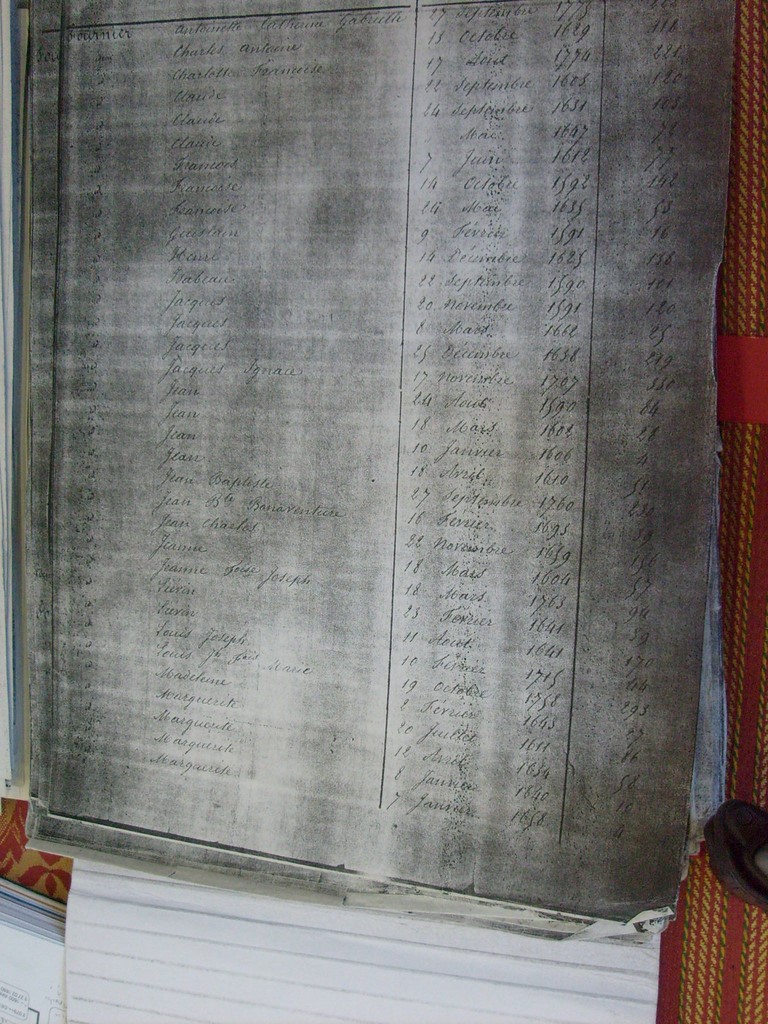 Fournier Antoinette Catherine Gabrielle 27 Septembre 1773
Charles Antoine 15 Octobre 1629 118
Charlotte Francoise 17 Aout 1774 221
Claude 22 Septembre 1605 120
Claude 24 Septembre 1631
Claude Mai 1647
Francois 7 Juin 1612 77
Francoise 14 Octobre 1592 142
Francoise 24 Mai 1635 53
Guislain 9 Février 1591 16
Henri 14 Décembre 1625 136
Isabeau 22 Septembre 1590 101
Jacques 20 Novembre 1591 120
Jacques 8 Mars 1662 25
Jacques 25 Décembre 1638 219
Jacques Ignace 17 Novembre 1707 350
Jean 24 Aout 1590 84
Jean 18 Mars 1602 28
Jean 10 Janvier 1606 4
Jean 18 Avril 1610 51
Jean Baptiste 27 Septembre 1760
Jean Bte Bonaventure 16 Fevrier 1693 39
Jean Charles 22 Novembre 1659 156
Jeanne 18 Mars 1604 57
Jeanne Joseph 12 Mars 1763 94
Livin 23 Fevrier 1641 59
Livin 11 Aout 1641 170
Louis Joseph 10 Février 1715 44
Louis Marie 19 Octobre 1758 293
Madeleine 2 Février 1643 27
Marguerite 20 Juillet 1611 16
Marguerite 12 Avril 1634 58
Marguerite 8 Janvier 1640 10
Marguerite 7 Janvier 1658 4